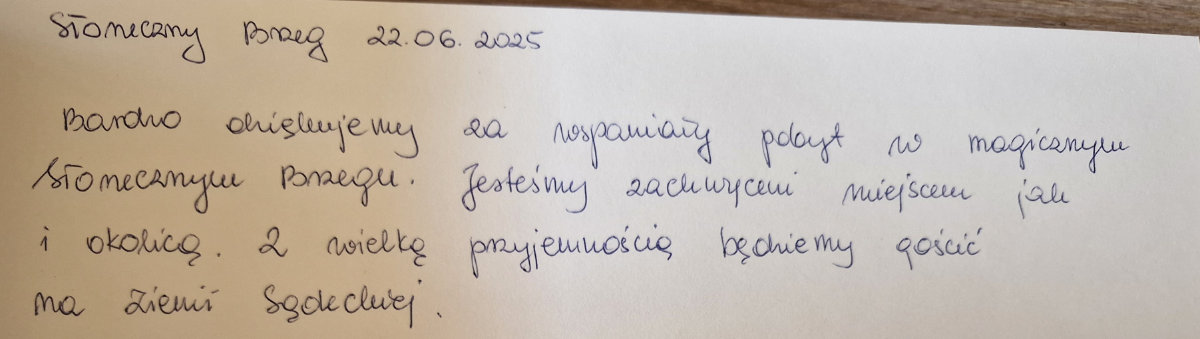 Słoneczny Brzeg 22.06.2025
Bardzo dziękujemy za wspaniały pobyt w magicznym
Słonecznym Brzegu. Jesteśmy zachwyceni miejscem jak
i okolicą. Z wielką przyjemnością będziemy gościć
na Ziemi Sądeckiej.